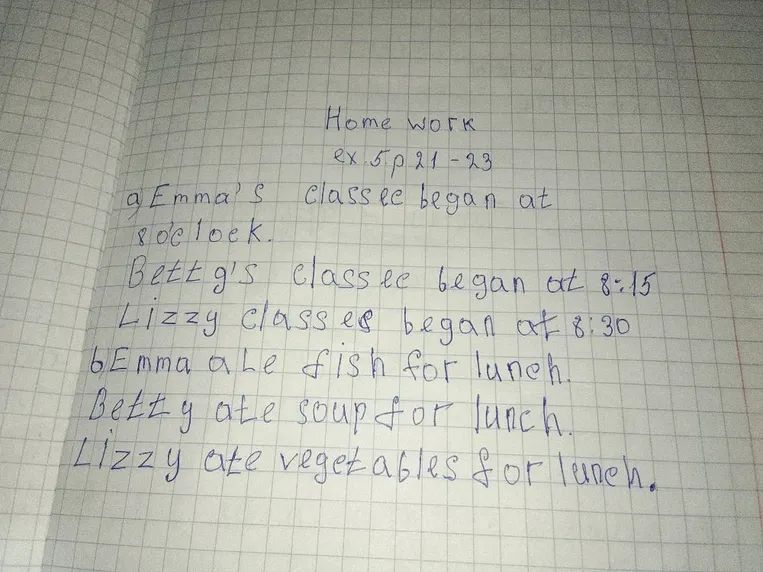 Home work
ex. 5 p 21-23
a) Emma's classec began at
8 o'clock.
Betty's classec began at 8:15
Lizzy classes began at 8:30
b Emma ate fish for lunch.
Betty ate soup for lunch.
Lizzy ate vegetables for lunch.